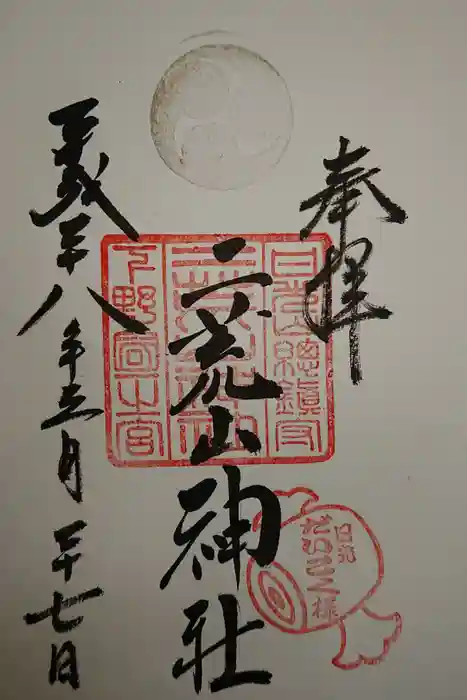 奉拝
日光山總鎮守
二荒山神社
下野國一之宮
二荒山神社
日光
だいこく様
平成二十八年五月二十七日